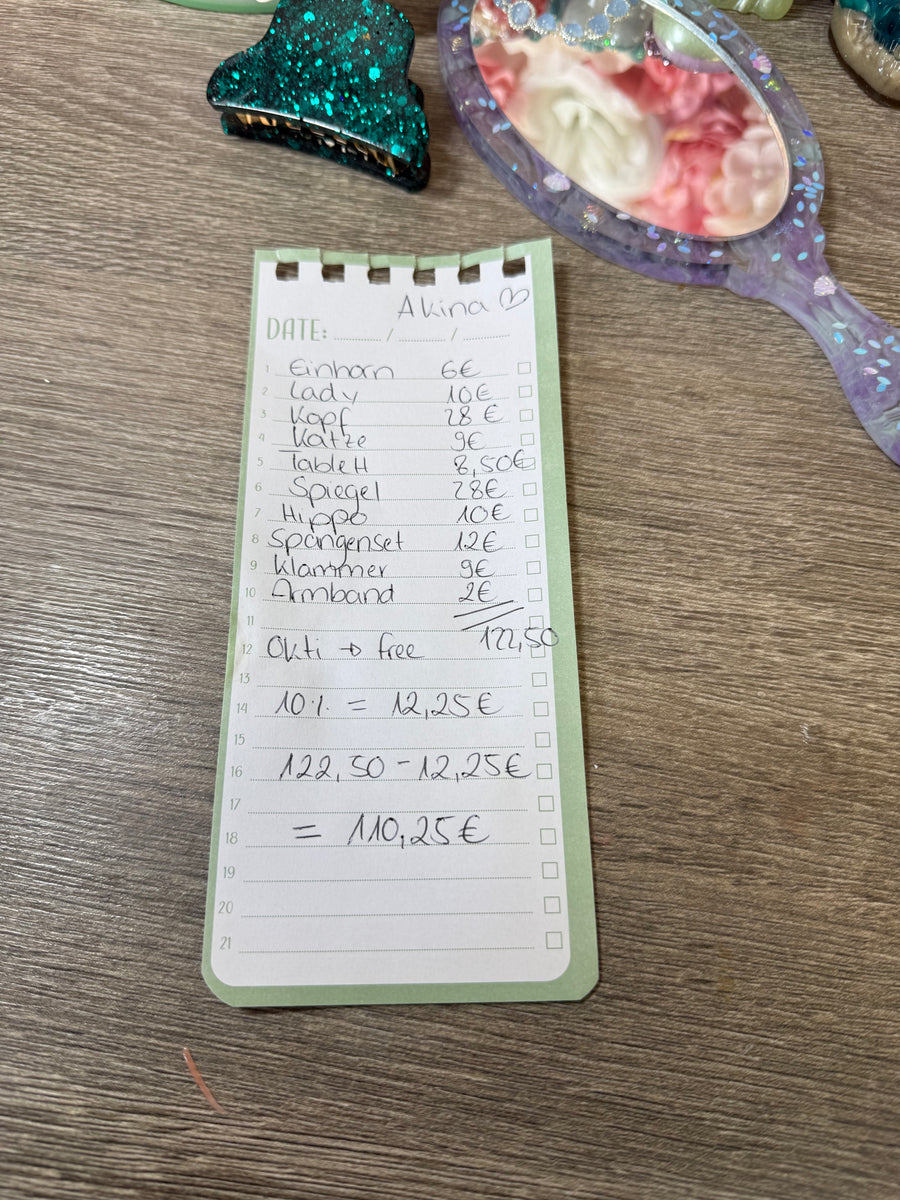 Akina ♡
DATE: ....... / ....... / .......
1 Einhorn 6€
2 Lady 10€
3 Kopf 28€
4 Katze 9€
5 Tablett 8,50€
6 Spiegel 28€
7 Hippo 10€
8 Spangenset 12€
9 Klammer 9€
10 Armband 2€
11
122,50
12 Okti → free
13
14 10% = 12,25€
15
16 122,50 - 12,25€
17
18 = 110,25€
19
20
21